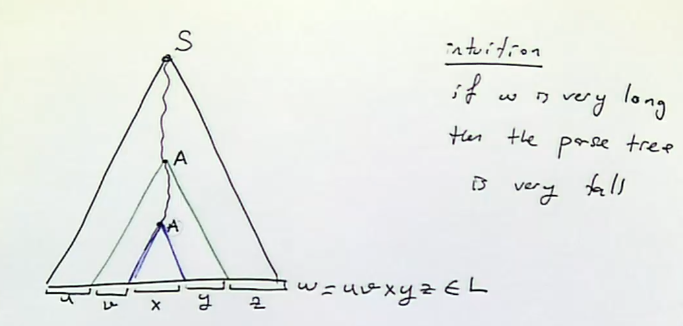 S
A
A
u v x y z w = uvxyz ∈ L
intuition
if w is very long
then the parse tree
is very talls